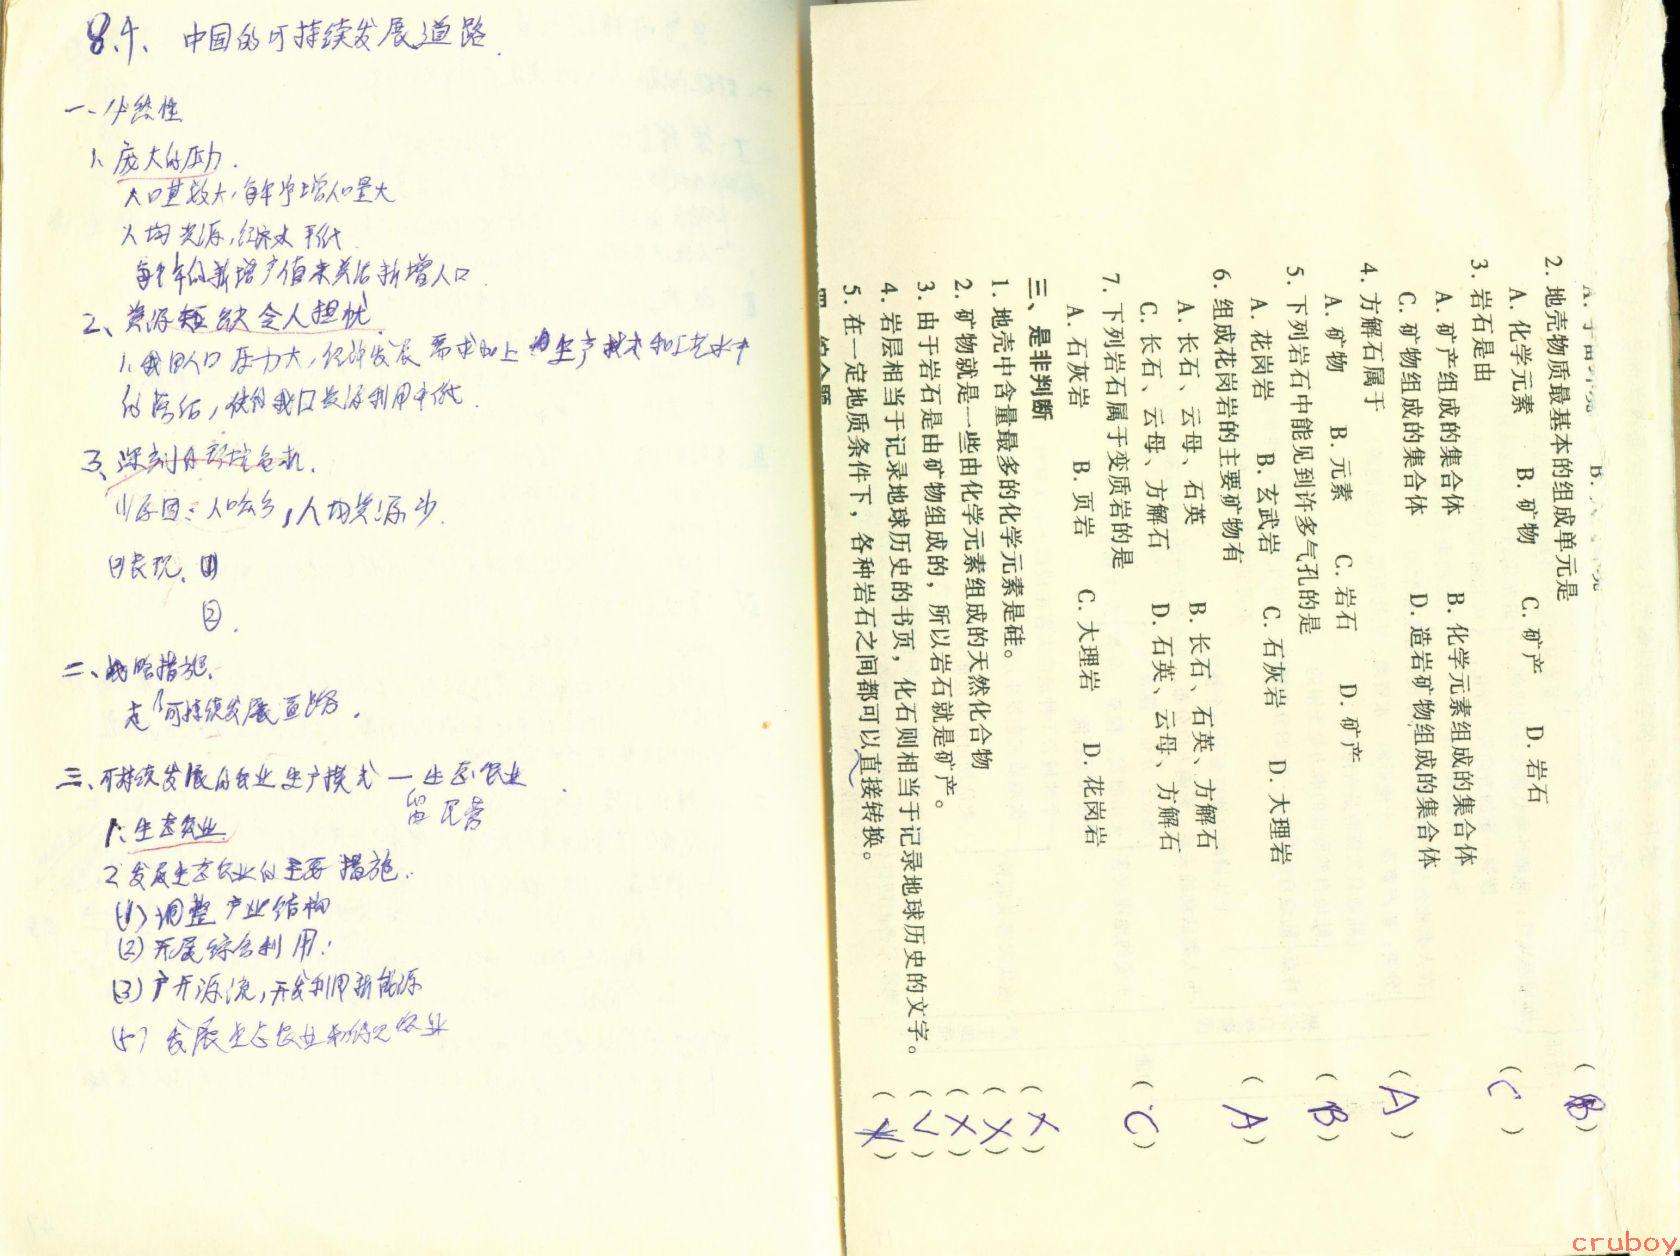 8.4、中国的可持续发展道路
一、必然性
1、庞大的压力.
人口基数大,每年净增人口量大
人均资源,经济水平低
每年的新增产值来养活新增人口
2、资源短缺令人担忧
1、我国人口压力大,经济发展需求加上 生产技术和工艺水平
的落后,使的我国资源利用率低.
3、深刻的环境危机.
(1)原因:人口众多,人均资源少.
(2)表现.①
②.
二、战略措施.
走可持续发展道路.
三、可持续发展的农业生产模式—生态农业
留民营
1、生态农业
2、发展生态农业的主要措施.
(1)调整产业结构
(2)开展综合利用;
(3)广开源流,开发利用新能源
(4)发展生态农业和 农业
2. 地壳物质最基本的组成单元是 (B)
A. 化学元素 B. 矿物 C. 矿产 D. 岩石
3. 岩石是由 (C)
A. 矿产组成的集合体 B. 化学元素组成的集合体
C. 矿物组成的集合体 D. 造岩矿物组成的集合体
4. 方解石属于 (A)
A. 矿物 B. 元素 C. 岩石 D. 矿产
5. 下列岩石中能见到许多气孔的是 (B)
A. 花岗岩 B. 玄武岩 C. 石灰岩 D. 大理岩
6. 组成花岗岩的主要矿物有 (A)
A. 长石、云母、石英 B. 长石、石英、方解石
C. 长石、云母、方解石 D. 石英、云母、方解石
7. 下列岩石属于变质岩的是 (C)
A. 石灰岩 B. 页岩 C. 大理岩 D. 花岗岩
三、是非判断
1. 地壳中含量最多的化学元素是硅。 (×)
2. 矿物就是一些由化学元素组成的天然化合物 (×)
3. 由于岩石是由矿物组成的，所以岩石就是矿产。 (×)
4. 岩层相当于记录地球历史的书页，化石则相当于记录地球历史的文字。 (√)
5. 在一定地质条件下，各种岩石之间都可以直接转换。 (×)
cruboy